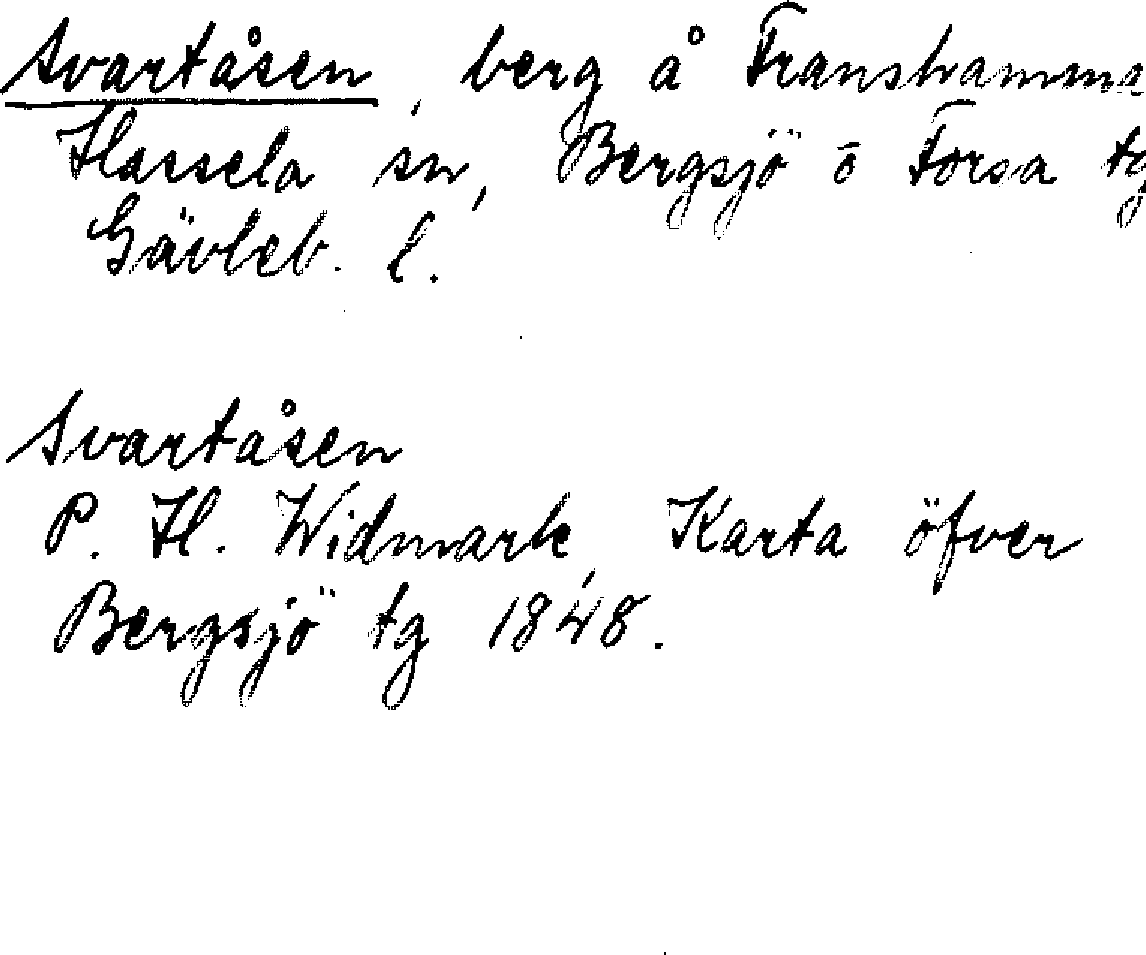 Svartåsen, berg å Franshamma
Hassela sn, Bergsjö o Forsa tg
Gävleb. l.
Svartåsen
P. H. Widmark, Karta öfver
Bergsjö tg 1848.